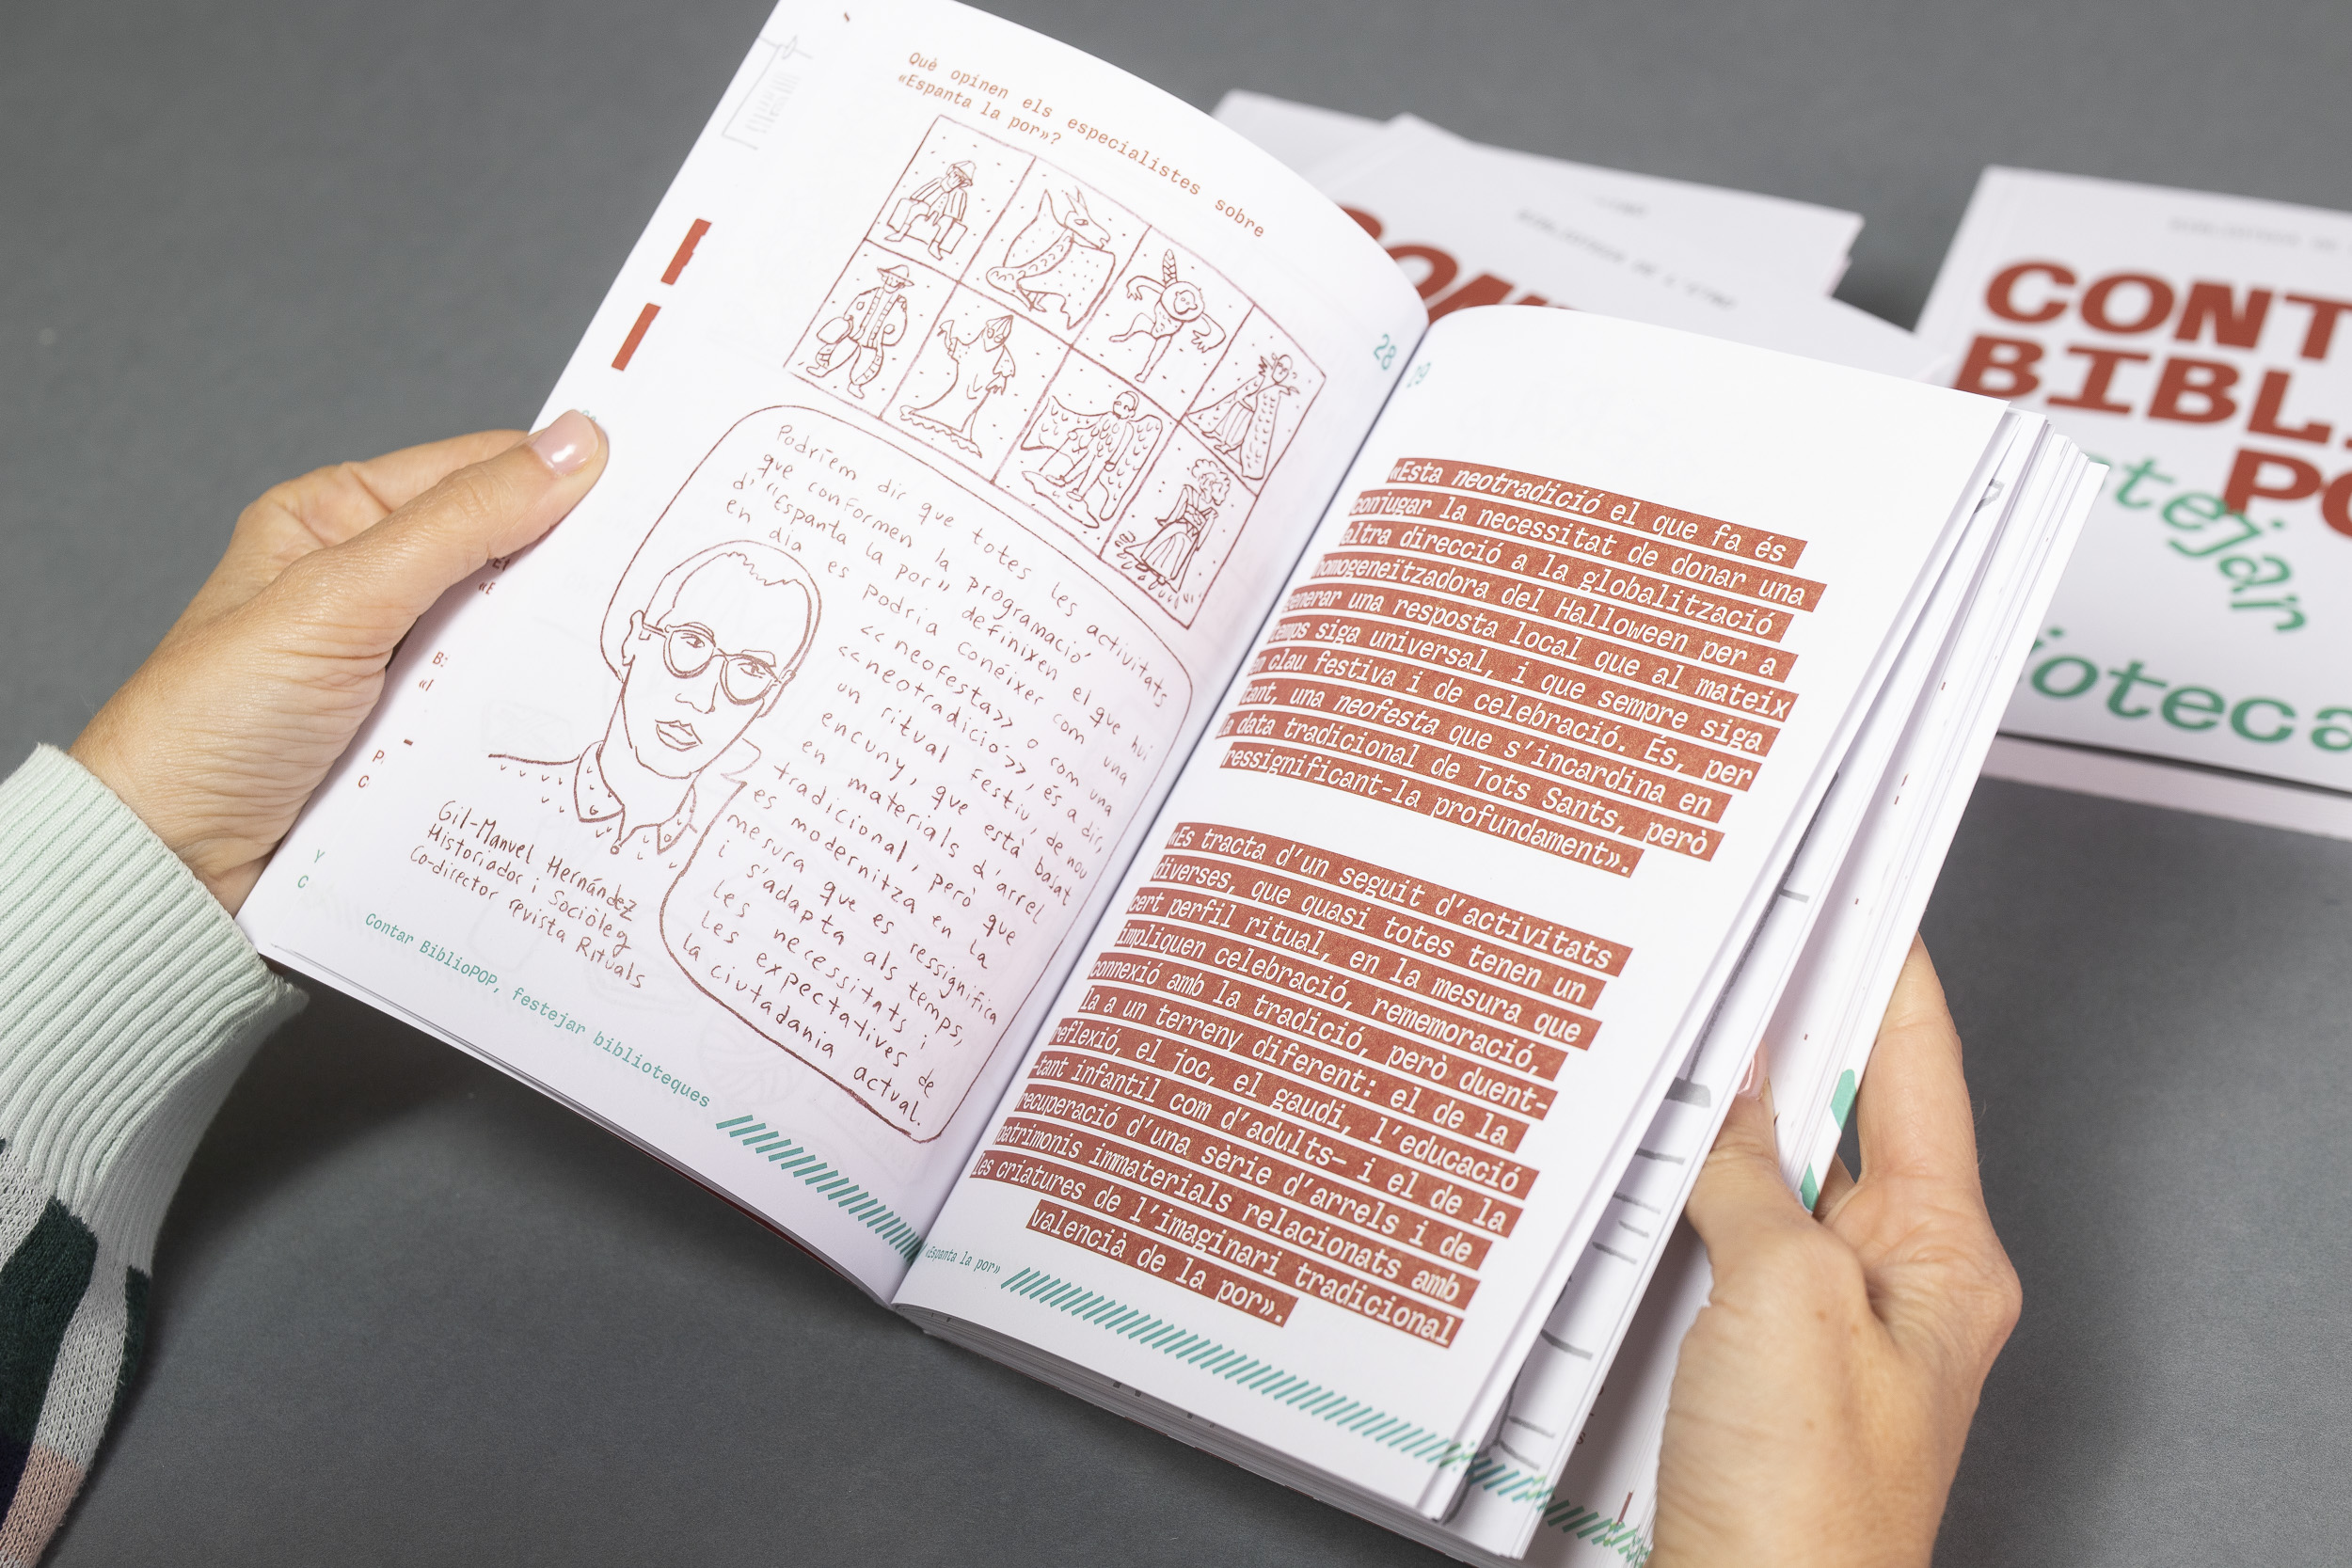 Què opinen els especialistes sobre
«Espanta la por»?
Podríem dir que totes les activitats
que conformen la programació
d'"Espanta la por" definixen el que hui
en dia es podria conéixer com una
«neofesta» o com una
«neotradició», és a dir,
un ritual festiu, de nou
encuny, que està basat
en materials d'arrel
tradicional, però que
es modernitza en la
mesura que es ressignifica
i s'adapta als temps,
les necessitats i
les expectatives de
la ciutadania actual.
Gil-Manuel Hernández
Historiador i Sociòleg
Co-director revista Rituals
Contar BiblioPOP, festejar biblioteques
28
29
«Esta neotradició el que fa és
conjugar la necessitat de donar una
altra direcció a la globalització
homogeneïtzadora del Halloween per a
generar una resposta local que al mateix
temps siga universal, i que sempre siga
en clau festiva i de celebració. És, per
tant, una neofesta que s'incardina en
la data tradicional de Tots Sants, però
ressignificant-la profundament».
«Es tracta d'un seguit d'activitats
diverses, que quasi totes tenen un
cert perfil ritual, en la mesura que
impliquen celebració, rememoració,
connexió amb la tradició, però duent-
la a un terreny diferent: el de la
reflexió, el joc, el gaudi, l'educació
-tant infantil com d'adults- i el de la
recuperació d'una sèrie d'arrels i de
patrimonis immaterials relacionats amb
les criatures de l'imaginari tradicional
valencià de la por».
«Espanta la por»
BIBLIOTECA DE L'ETNO
CONT
BIBL
PO
tejar
ioteca